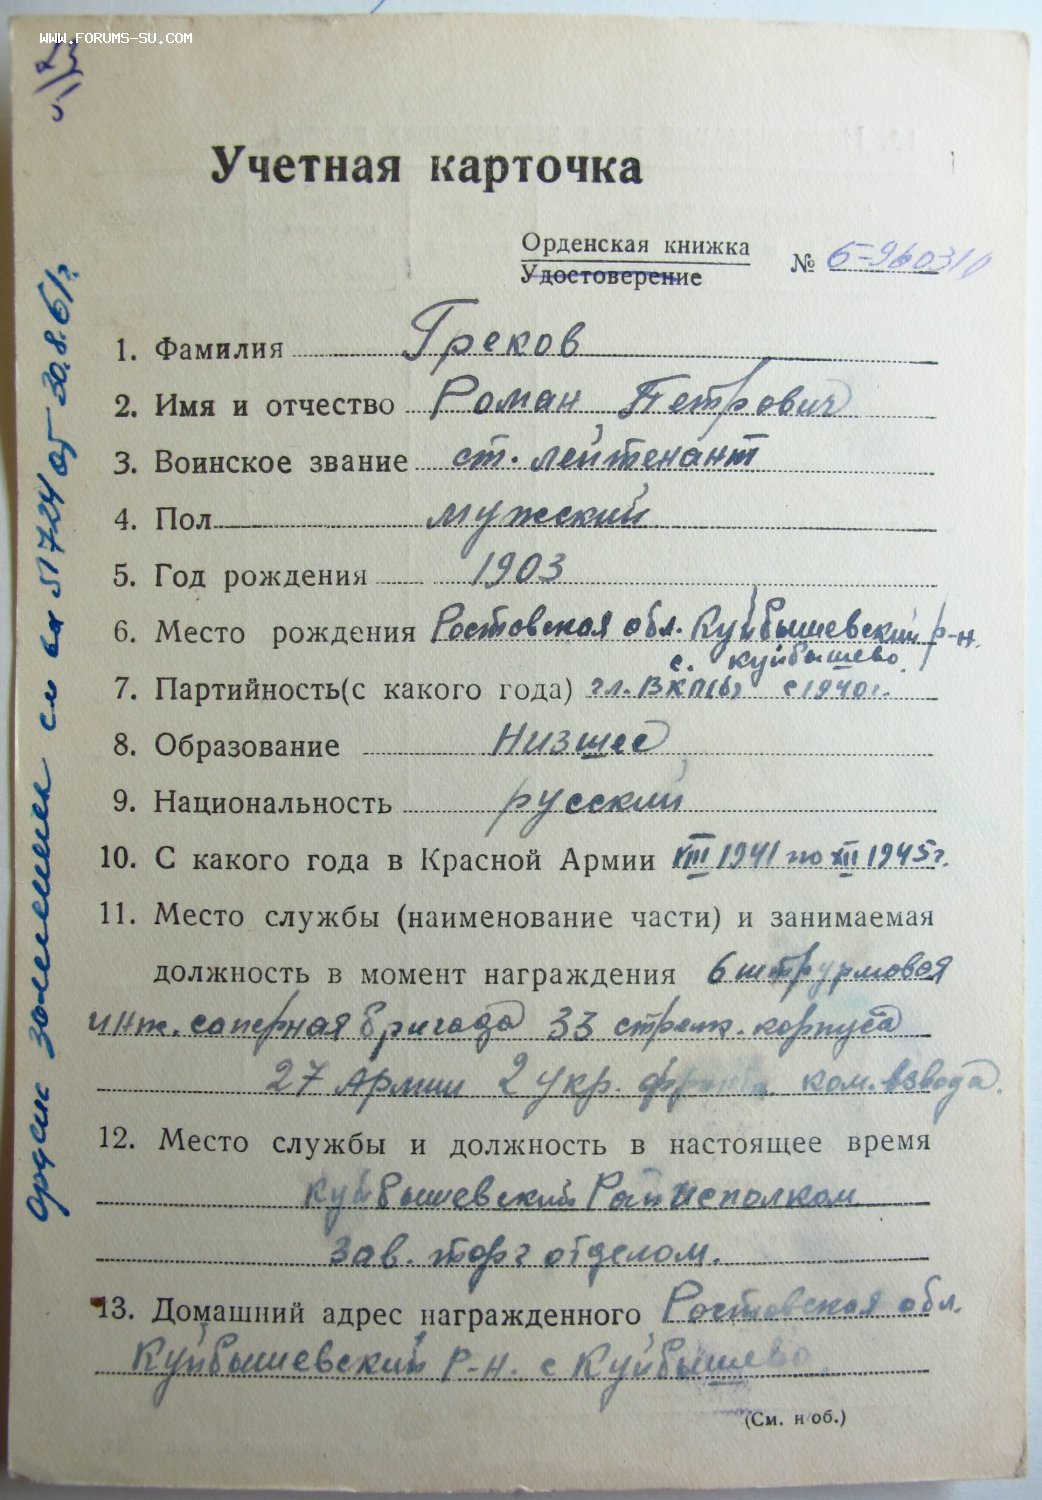 WWW.FORUMS-SU.COM
Учетная карточка
Орденская книжка
Удостоверение
№ Б-960310
1. Фамилия Греков
2. Имя и отчество Роман Петрович
3. Воинское звание ст. лейтенант
4. Пол мужский
5. Год рождения 1903
6. Место рождения Ростовская обл. Куйбышевский р-н.
с. Куйбышево
7. Партийность(с какого года) чл. ВКП(б) с 1940г.
8. Образование Низшее
9. Национальность русский
10. С какого года в Красной Армии VIII 1941 по XII 1945г.
11. Место службы (наименование части) и занимаемая
должность в момент награждения 6 штурмовая
инж. саперная бригада 33 стрелк. корпуса
27 Армии 2 Укр. фронта ком. взвода.
12. Место службы и должность в настоящее время
Куйбышевский Райисполком
Зав. торг отделом.
13. Домашний адрес награжденного Ростовская обл.
Куйбышевский р-н. с Куйбышево.
(См. н/об.)
Орден см вх 51724 от 30.8.61г.